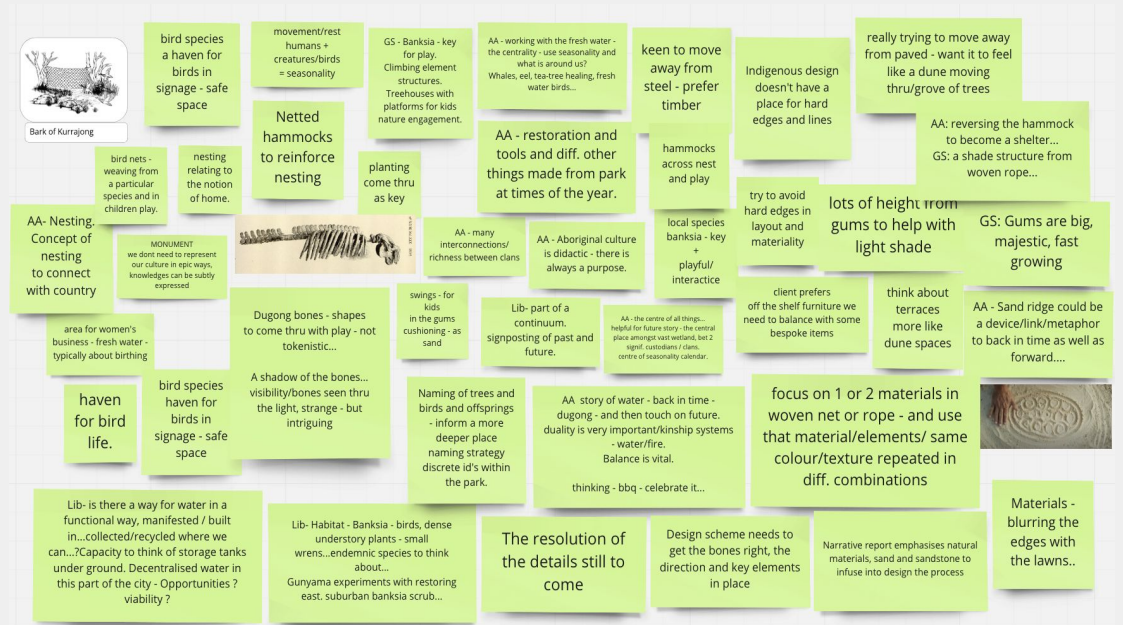 Bark of Kurrajong
bird species
a haven for
birds in
signage - safe
space
movement/rest
humans +
creatures/birds
= seasonality
GS - Banksia - key
for play.
Climbing element
structures.
Treehouses with
platforms for kids
nature engagement.
AA - working with the fresh water -
the centrality - use seasonality and
what is around us?
Whales, eel, tea-tree healing, fresh
water birds...
keen to move
away from
steel - prefer
timber
Indigenous design
doesn't have a
place for hard
edges and lines
really trying to move away
from paved - want it to feel
like a dune moving
thru/grove of trees
Netted
hammocks
to reinforce
nesting
AA - restoration and
tools and diff. other
things made from park
at times of the year.
hammocks
across nest
and play
AA: reversing the hammock
to become a shelter...
GS: a shade structure from
woven rope...
bird nets -
weaving from
a particular
species and in
children play.
nesting
relating to
the notion
of home.
planting
come thru
as key
try to avoid
hard edges in
layout and
materiality
lots of height from
gums to help with
light shade
GS: Gums are big,
majestic, fast
growing
AA- Nesting.
Concept of
nesting
to connect
with country
MONUMENT
we dont need to represent
our culture in epic ways,
knowledges can be subtly
expressed
AA - many
interconnections/
richness between clans
AA - Aboriginal culture
is didactic - there is
always a purpose.
local species
banksia - key
+
playful/
interactice
client prefers
off the shelf furniture we
need to balance with some
bespoke items
think about
terraces
more like
dune spaces
AA - Sand ridge could be
a device/link/metaphor
to back in time as well as
forward....
area for women's
business - fresh water -
typically about birthing
Dugong bones - shapes
to come thru with play - not
tokenistic...
A shadow of the bones...
visibility/bones seen thru
the light, strange - but
intriguing
swings - for
kids
in the gums
cushioning - as
sand
Lib- part of a
continuum.
signposting of past and
future.
AA - the centre of all things...
helpful for future story - the central
place amongst vast wetland, bet 2
signif. custodians / clans.
centre of seasonality calendar.
haven
for bird
life.
bird species
haven for
birds in
signage - safe
space
Naming of trees and
birds and offsprings
- inform a more
deeper place
naming strategy
discrete id's within
the park.
AA story of water - back in time -
dugong - and then touch on future.
duality is very important/kinship systems
- water/fire.
Balance is vital.
thinking - bbq - celebrate it...
focus on 1 or 2 materials in
woven net or rope - and use
that material/elements/ same
colour/texture repeated in
diff. combinations
Lib- is there a way for water in a
functional way, manifested / built
in...collected/recycled where we
can...?Capacity to think of storage tanks
under ground. Decentralised water in
this part of the city - Opportunities ?
viability ?
Lib- Habitat - Banksia - birds, dense
understory plants - small
wrens...endemnic species to think
about...
Gunyama experiments with restoring
east. suburban banksia scrub...
The resolution of
the details still to
come
Design scheme needs to
get the bones right, the
direction and key elements
in place
Narrative report emphasises natural
materials, sand and sandstone to
infuse into design the process
Materials -
blurring the
edges with
the lawns..